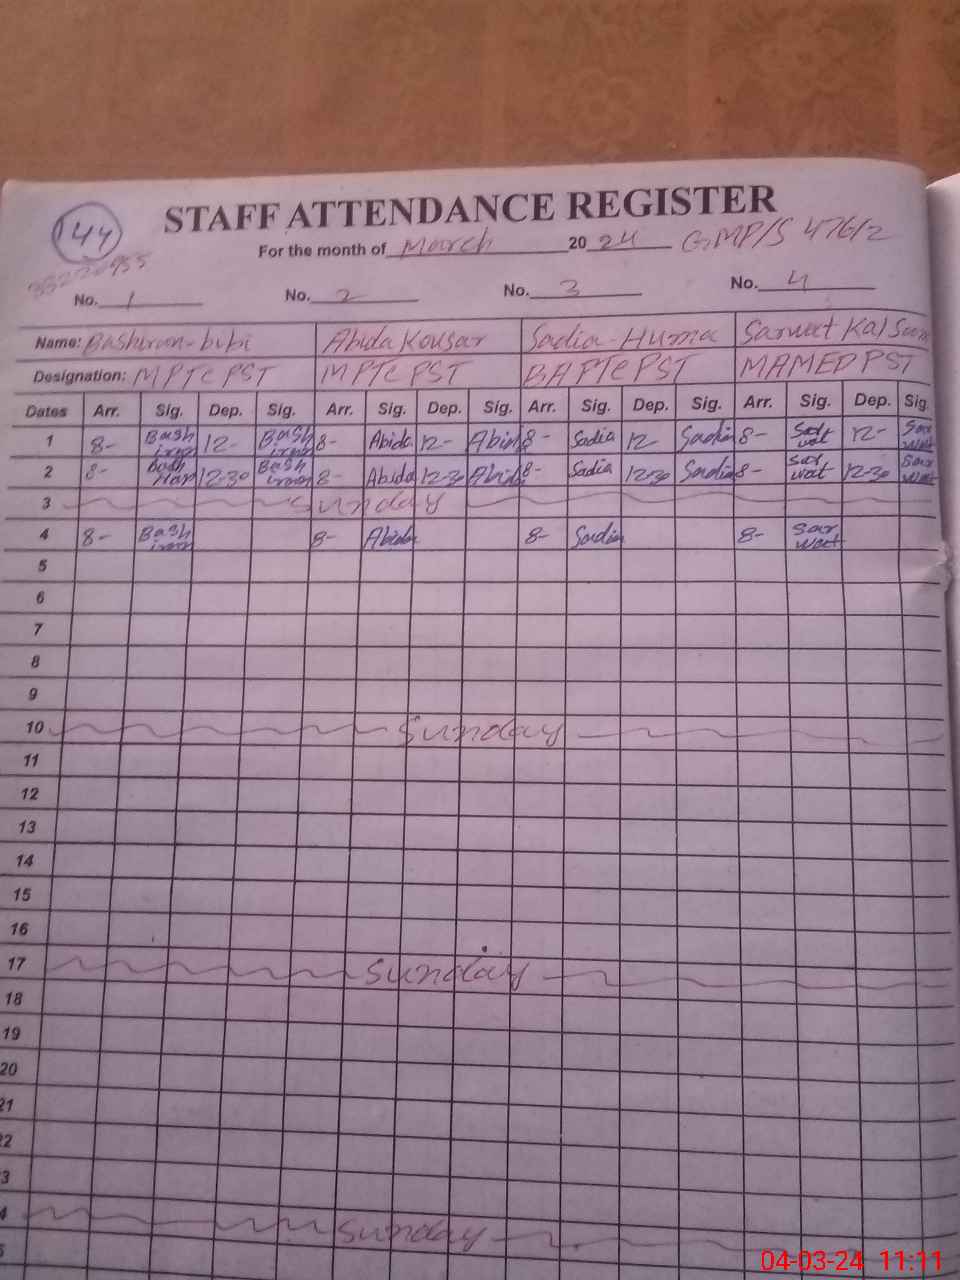 144
STAFF ATTENDANCE REGISTER
For the month of March 2024 GMP/S 476/2
No. 1 No. 2 No. 3 No. 4
Name: Bashiran-bibi Abida Kousar Sadia-Huma Sarwat Kalsoom
Designation: MPTC PST MPTC PST BAPTC PST MAMED PST
Dates Arr. Sig. Dep. Sig. Arr. Sig. Dep. Sig. Arr. Sig. Dep. Sig. Arr. Sig. Dep. Sig.
1 8- Bash iran 12- Bash iran 8- Abida 12- Abida 8- Sadia 12 Sadia 8- Sar wat 12- Sar wat
2 8- Bash iran 12-30 Bash iran 8- Abida 12-30 Abida 8- Sadia 12-30 Sadia 8- Sar wat 12-30 Sar wat
3 Sunday
4 8- Bash iran 8- Abida 8- Sadia 8- Sar wat
5
6
7
8
9
10 Sunday
11
12
13
14
15
16
17 Sunday
18
19
20
21
22
3
4 Sunday
5
04-03-24 11:11